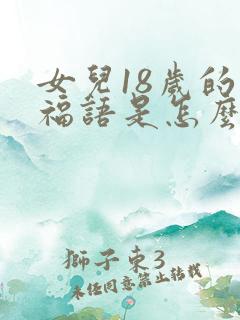 女兒18歲的
福語是怎麼
獅子東3
未經同意禁止轉載